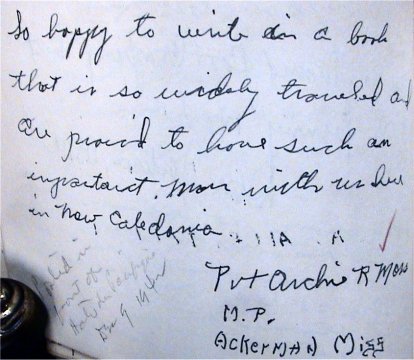 So happy to write in a book
that is so widely traveled and
are proud to have such an
important man with us here
in New Caledonia
Pvt Archie R Moss
M.P.
Ackerman Miss
in
front of
Dec 9 1942